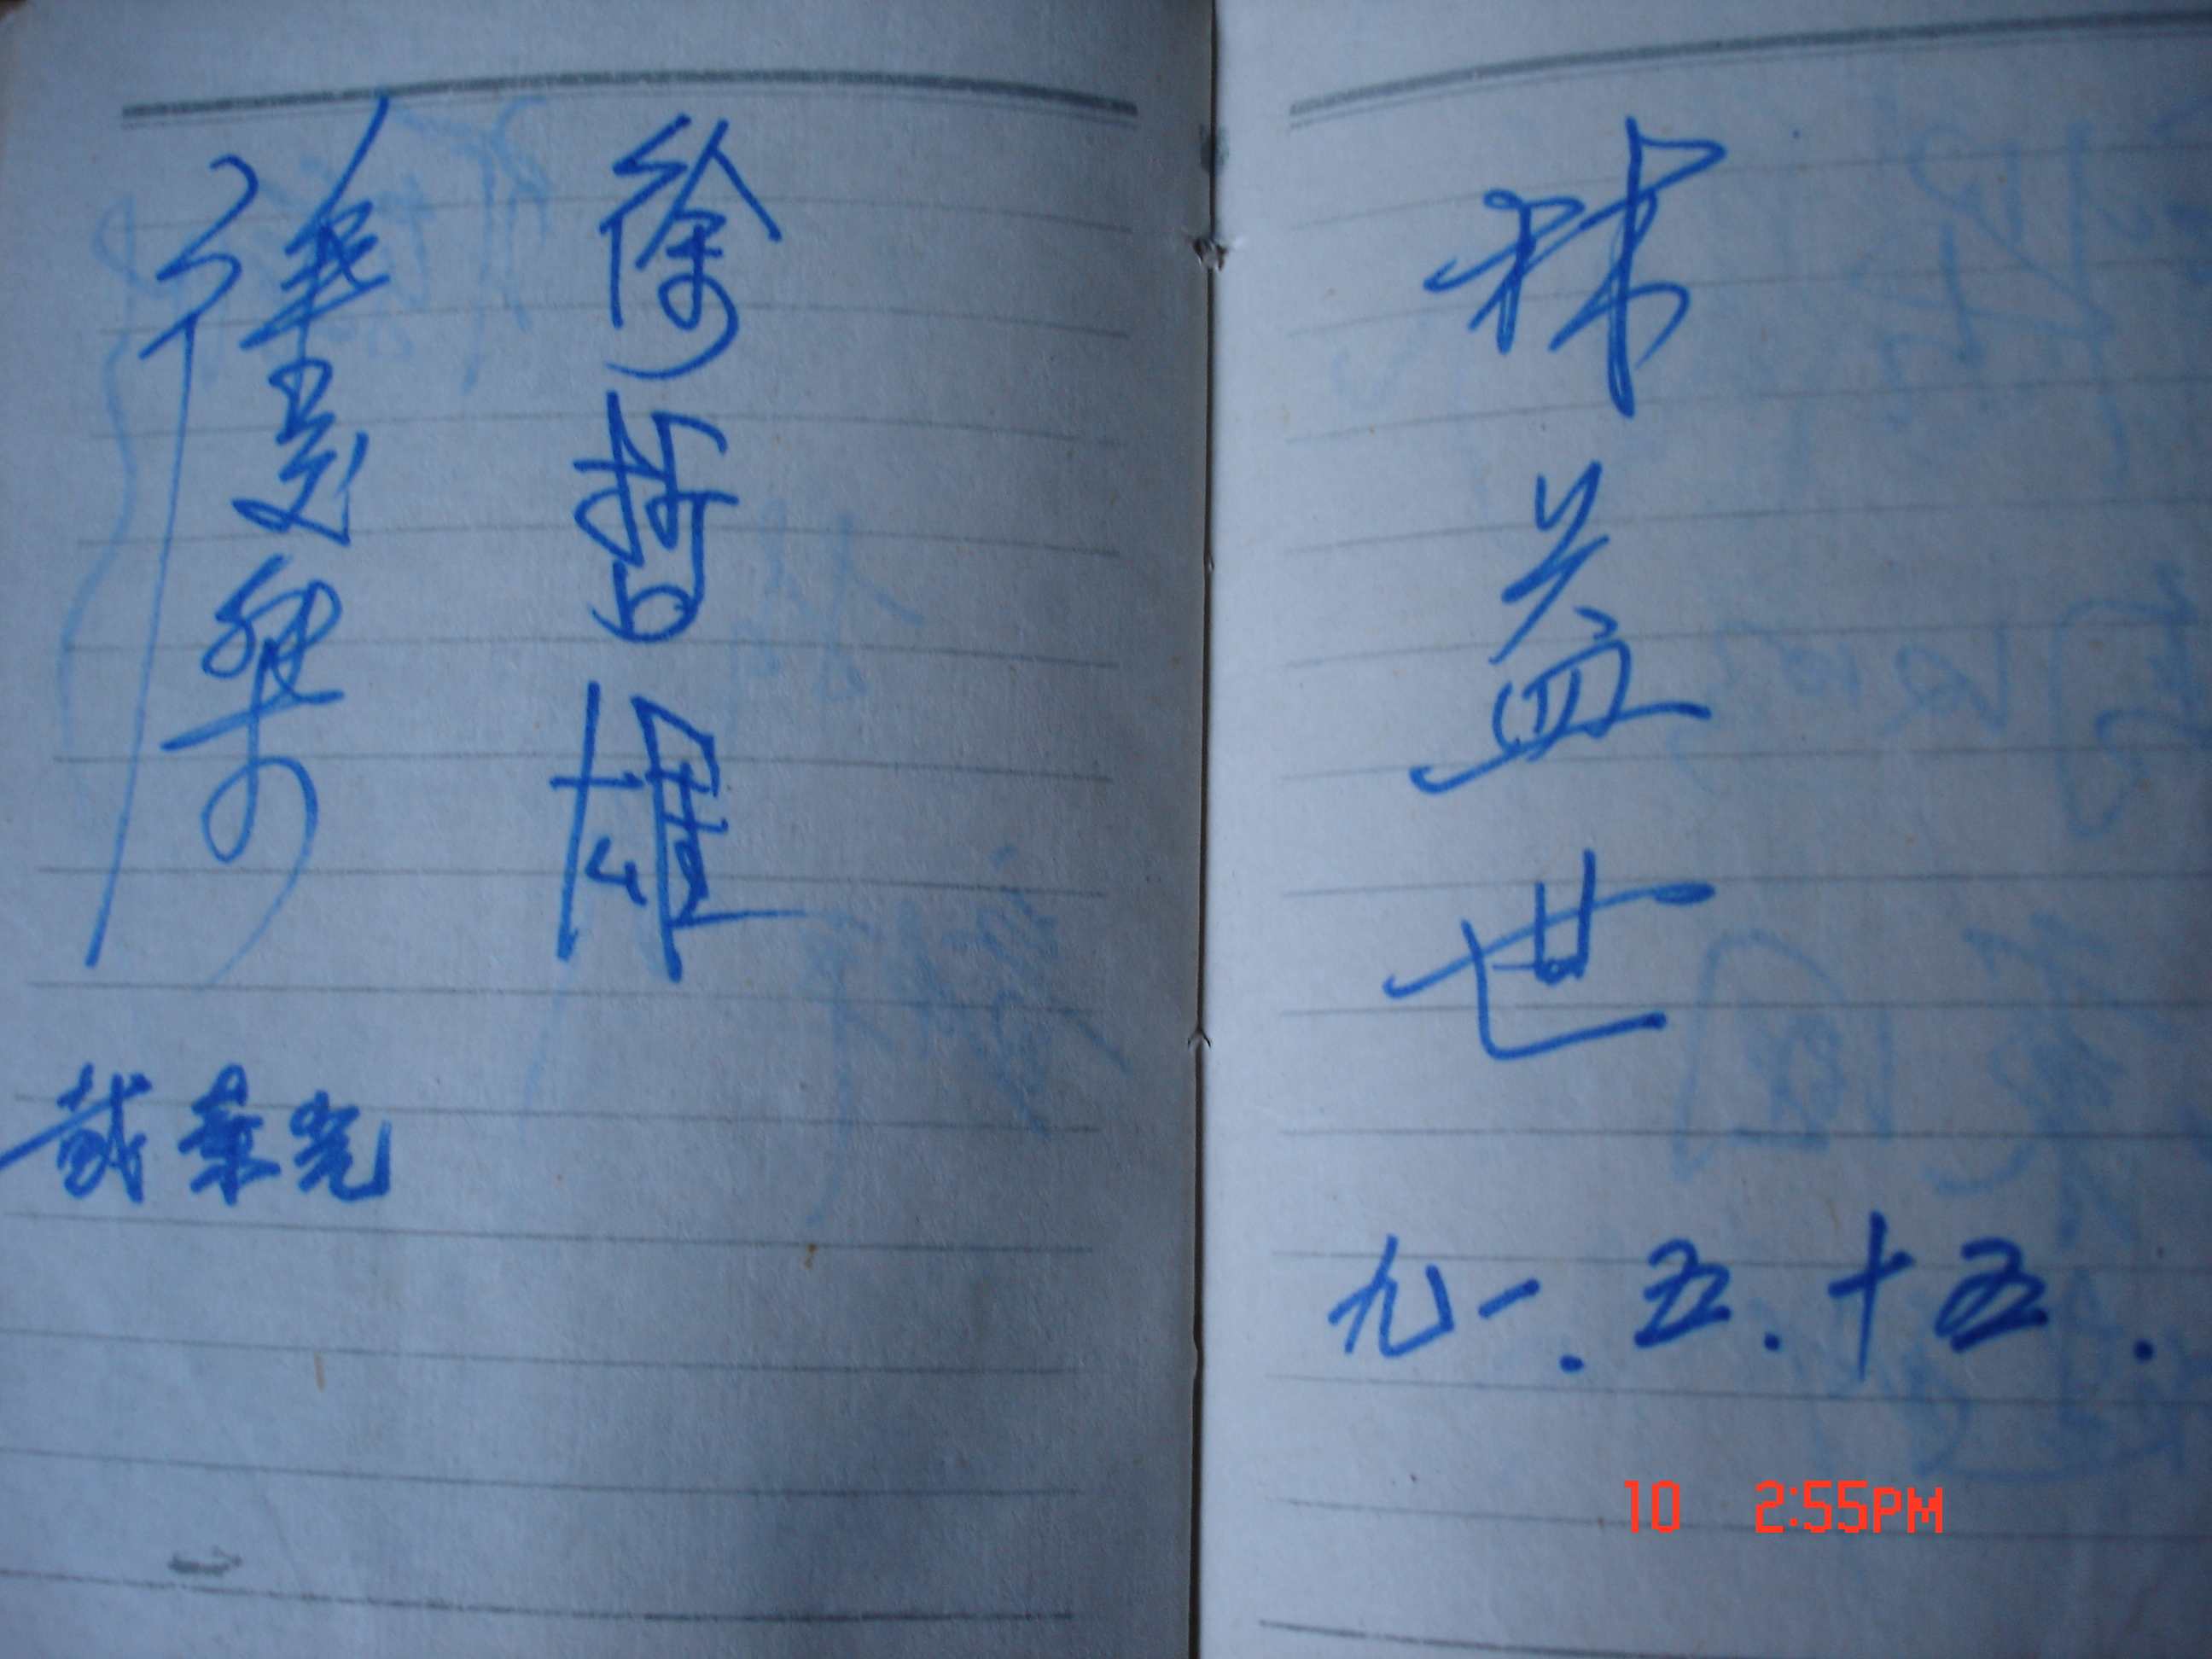 林益世
九一.五.十五.
徐哲雄
戴荣光
10 2:55PM